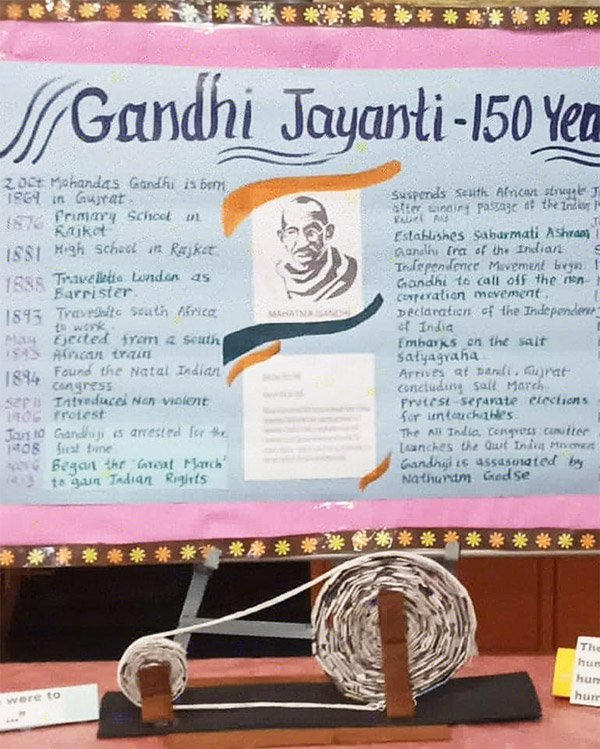 Gandhi Jayanti - 150 Yea
2 Oct Mohandas Gandhi is born
1869 in Gujrat.
1876 Primary School in
Rajkot
1881 High School in Rajkot
1888 Travelleto London as
Barrister.
1893 Travelsto South Africa
to work.
May Ejected from a South
1893 African train
1894 Found the Natal Indian
congress
Sep 11 Introduced Non-violent
1906 Protest
Jan 10 Gandhiji is arrested for the
1908 first time
Began the 'Great March'
1913 to gain Indian Rights
MAHATMA GANDHI
Suspends South African struggle
after winning passage of the Indian
Relief Act
Establishes Sabarmati Ashram
Gandhi Era of the Indian
Independence Movement begin.
Gandhi to call off the non-
cooperation movement.
Declaration of the Independence
of India
Embarks on the salt
Satyagraha
Arrives at Dandi, Gujrat
concluding Salt March.
Protest-separate elections
for untouchables.
The All India Congress
Launches the Quit India Movement
Gandhiji is assasinated by
Nathuram Godse
were to
..."
The
hum
hum
hum